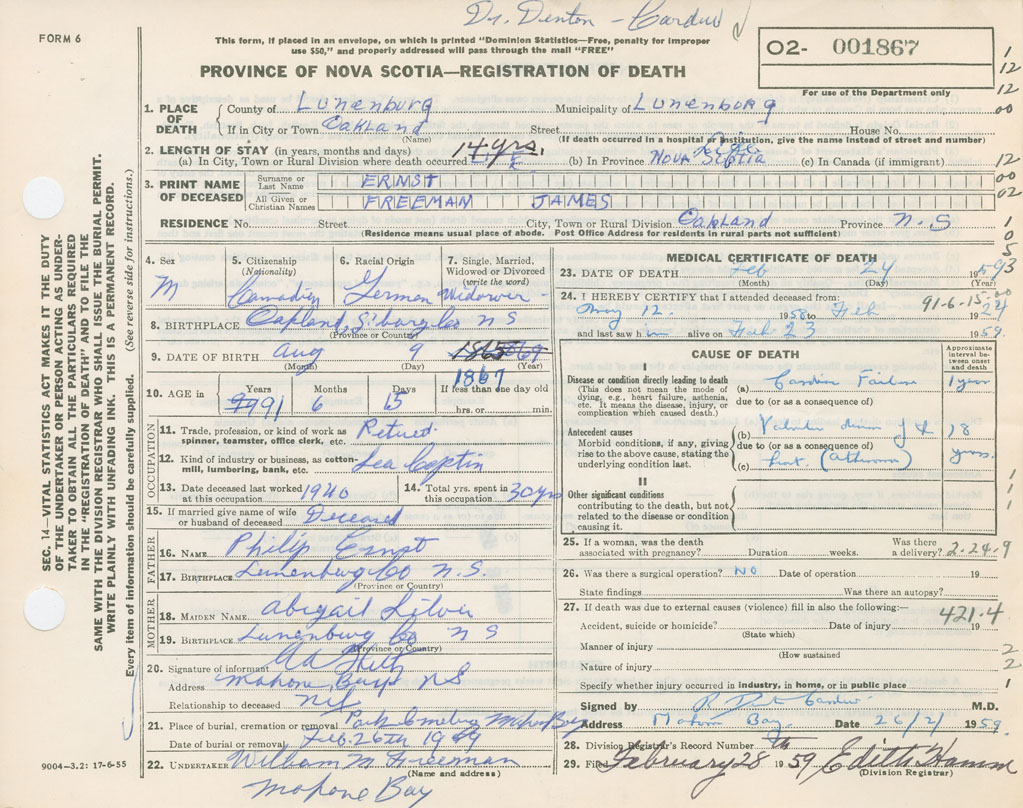 Dr. Denton - Cardew
FORM 6
This form, if placed in an envelope, on which is printed "Dominion Statistics—Free, penalty for improper
use $50," and properly addressed will pass through the mail "FREE"
PROVINCE OF NOVA SCOTIA—REGISTRATION OF DEATH
02- 001867
For use of the Department only
1. PLACE OF DEATH
County of Lunenburg Municipality of Lunenburg
If in City or Town Oakland Street House No.
(Name) (If death occurred in a hospital or institution, give the name instead of street and number)
2. LENGTH OF STAY (in years, months and days)
(a) In City, Town or Rural Division where death occurred 14 yrs. (b) In Province Life Nova Scotia (c) In Canada (if immigrant)
3. PRINT NAME OF DECEASED
Surname or Last Name ERNST
All Given or Christian Names FREEMAN JAMES
RESIDENCE No. Street City, Town or Rural Division Oakland Province N.S
(Residence means usual place of abode. Post Office Address for residents in rural parts not sufficient)
4. Sex M
5. Citizenship (Nationality) Canadian
6. Racial Origin German
7. Single, Married, Widowed or Divorced (write the word) Widower
8. BIRTHPLACE Oakland, L'burg Co N S
(Province or Country)
9. DATE OF BIRTH Aug 9 1867
(Month) (Day) (Year)
10. AGE in Years 91 Months 6 Days 15 If less than one day old
hrs. or min.
OCCUPATION
11. Trade, profession, or kind of work as spinner, teamster, office clerk, etc. Retired.
12. Kind of industry or business, as cotton-mill, lumbering, bank, etc. Sea Captin
13. Date deceased last worked at this occupation 1940
14. Total yrs. spent in this occupation 30 yrs
15. If married give name of wife or husband of deceased Deceased
FATHER
16. NAME Philip Ernst
17. BIRTHPLACE Lunenburg Co N.S.
(Province or Country)
MOTHER
18. MAIDEN NAME Abigail Silver
19. BIRTHPLACE Lunenburg Co N S
(Province or Country)
20. Signature of informant
Address Mahone Bay NS
Relationship to deceased
21. Place of burial, cremation or removal Park Cmetery Mahone Bay
Date of burial or removal Feb. 26th 1959
22. UNDERTAKER William M Freeman
(Name and address)
Mahone Bay
9004-3.2: 17-6-55
MEDICAL CERTIFICATE OF DEATH
23. DATE OF DEATH Feb 24 1959
(Month) (Day) (Year)
24. I HEREBY CERTIFY that I attended deceased from: 91-6-15-00
May 12. 1958 to Feb 24 19
and last saw him alive on Feb 23 1959.
CAUSE OF DEATH
Approximate interval between onset and death
I
Disease or condition directly leading to death
(This does not mean the mode of dying, e.g., heart failure, asthenia, etc. It means the disease, injury, or complication which caused death.)
(a) Cardiac Failure 1 year
due to (or as a consequence of)
Antecedent causes
Morbid conditions, if any, giving rise to the above cause, stating the underlying condition last.
(b) Valvular disease of the 18 years.
due to (or as a consequence of)
(c) heart.
II
Other significant conditions contributing to the death, but not related to the disease or condition causing it.
25. If a woman, was the death associated with pregnancy? Duration weeks. Was there a delivery? 2-24-9
26. Was there a surgical operation? NO Date of operation 19
State findings Was there an autopsy?
27. If death was due to external causes (violence) fill in also the following:—
421.4
Accident, suicide or homicide? Date of injury 19
(State which)
Manner of injury
(How sustained
Nature of injury
Specify whether injury occurred in industry, in home, or in public place
Signed by M.D.
Address Mahone Bay Date 26/2/1959.
28. Division Registrar's Record Number
29. Filed February 28th 1959 Edith Hamm
(Division Registrar)
SEC. 14—VITAL STATISTICS ACT MAKES IT THE DUTY
OF THE UNDERTAKER OR PERSON ACTING AS UNDER-
TAKER TO OBTAIN ALL THE PARTICULARS REQUIRED
IN THE "REGISTRATION OF DEATH" AND TO FILE THE
SAME WITH THE DIVISION REGISTRAR WHO SHALL ISSUE THE BURIAL PERMIT.
WRITE PLAINLY WITH UNFADING INK. THIS IS A PERMANENT RECORD.
Every item of information should be carefully supplied. (See reverse side for instructions.)
1
12
12
00
12
00
02
1
0
5
93
1
1
1
2
2
1